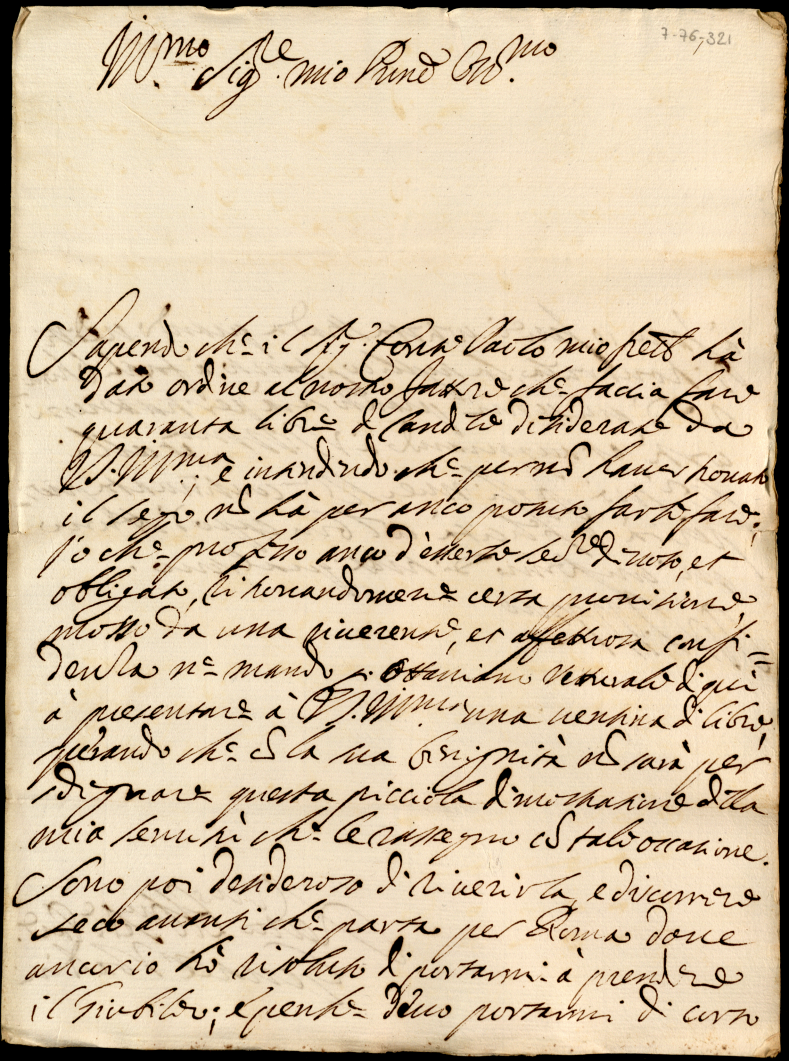 7-76,321
Ill.mo Sig.re mio Pune Oss.mo
Sapendo che il Sig.r Conte Paolo mio fratello hà
dato ordine al nostro fattore che faccia fare
quaranta libre di candele desiderate da
V.S. Ill.ma, e intendendo che per nõ haver trovato
il sego, nõ hà per anco potuto farle fare;
Io che professo anco d'esserle ser.re divoto, et
obligato, ritrovandomene certa provisione,
mosso da una riverente, et affettuosa confi=
denza ne mando p. Ottaviano Vetturale di qui
à presentare à V.S. Ill.ma una ventina di libre,
sperando che cõ la sua benignità nõ sarà per
sdegnare questa picciola dimostratione della
mia servitù che le rassegno cõ tale occasione.
Sono poi desideroso di riverirla, e discorrere
seco avanti che parta per Roma dove
ancor io hò risoluto di portarmi à prendere
il Giubileo; e pensere portarmi di costà